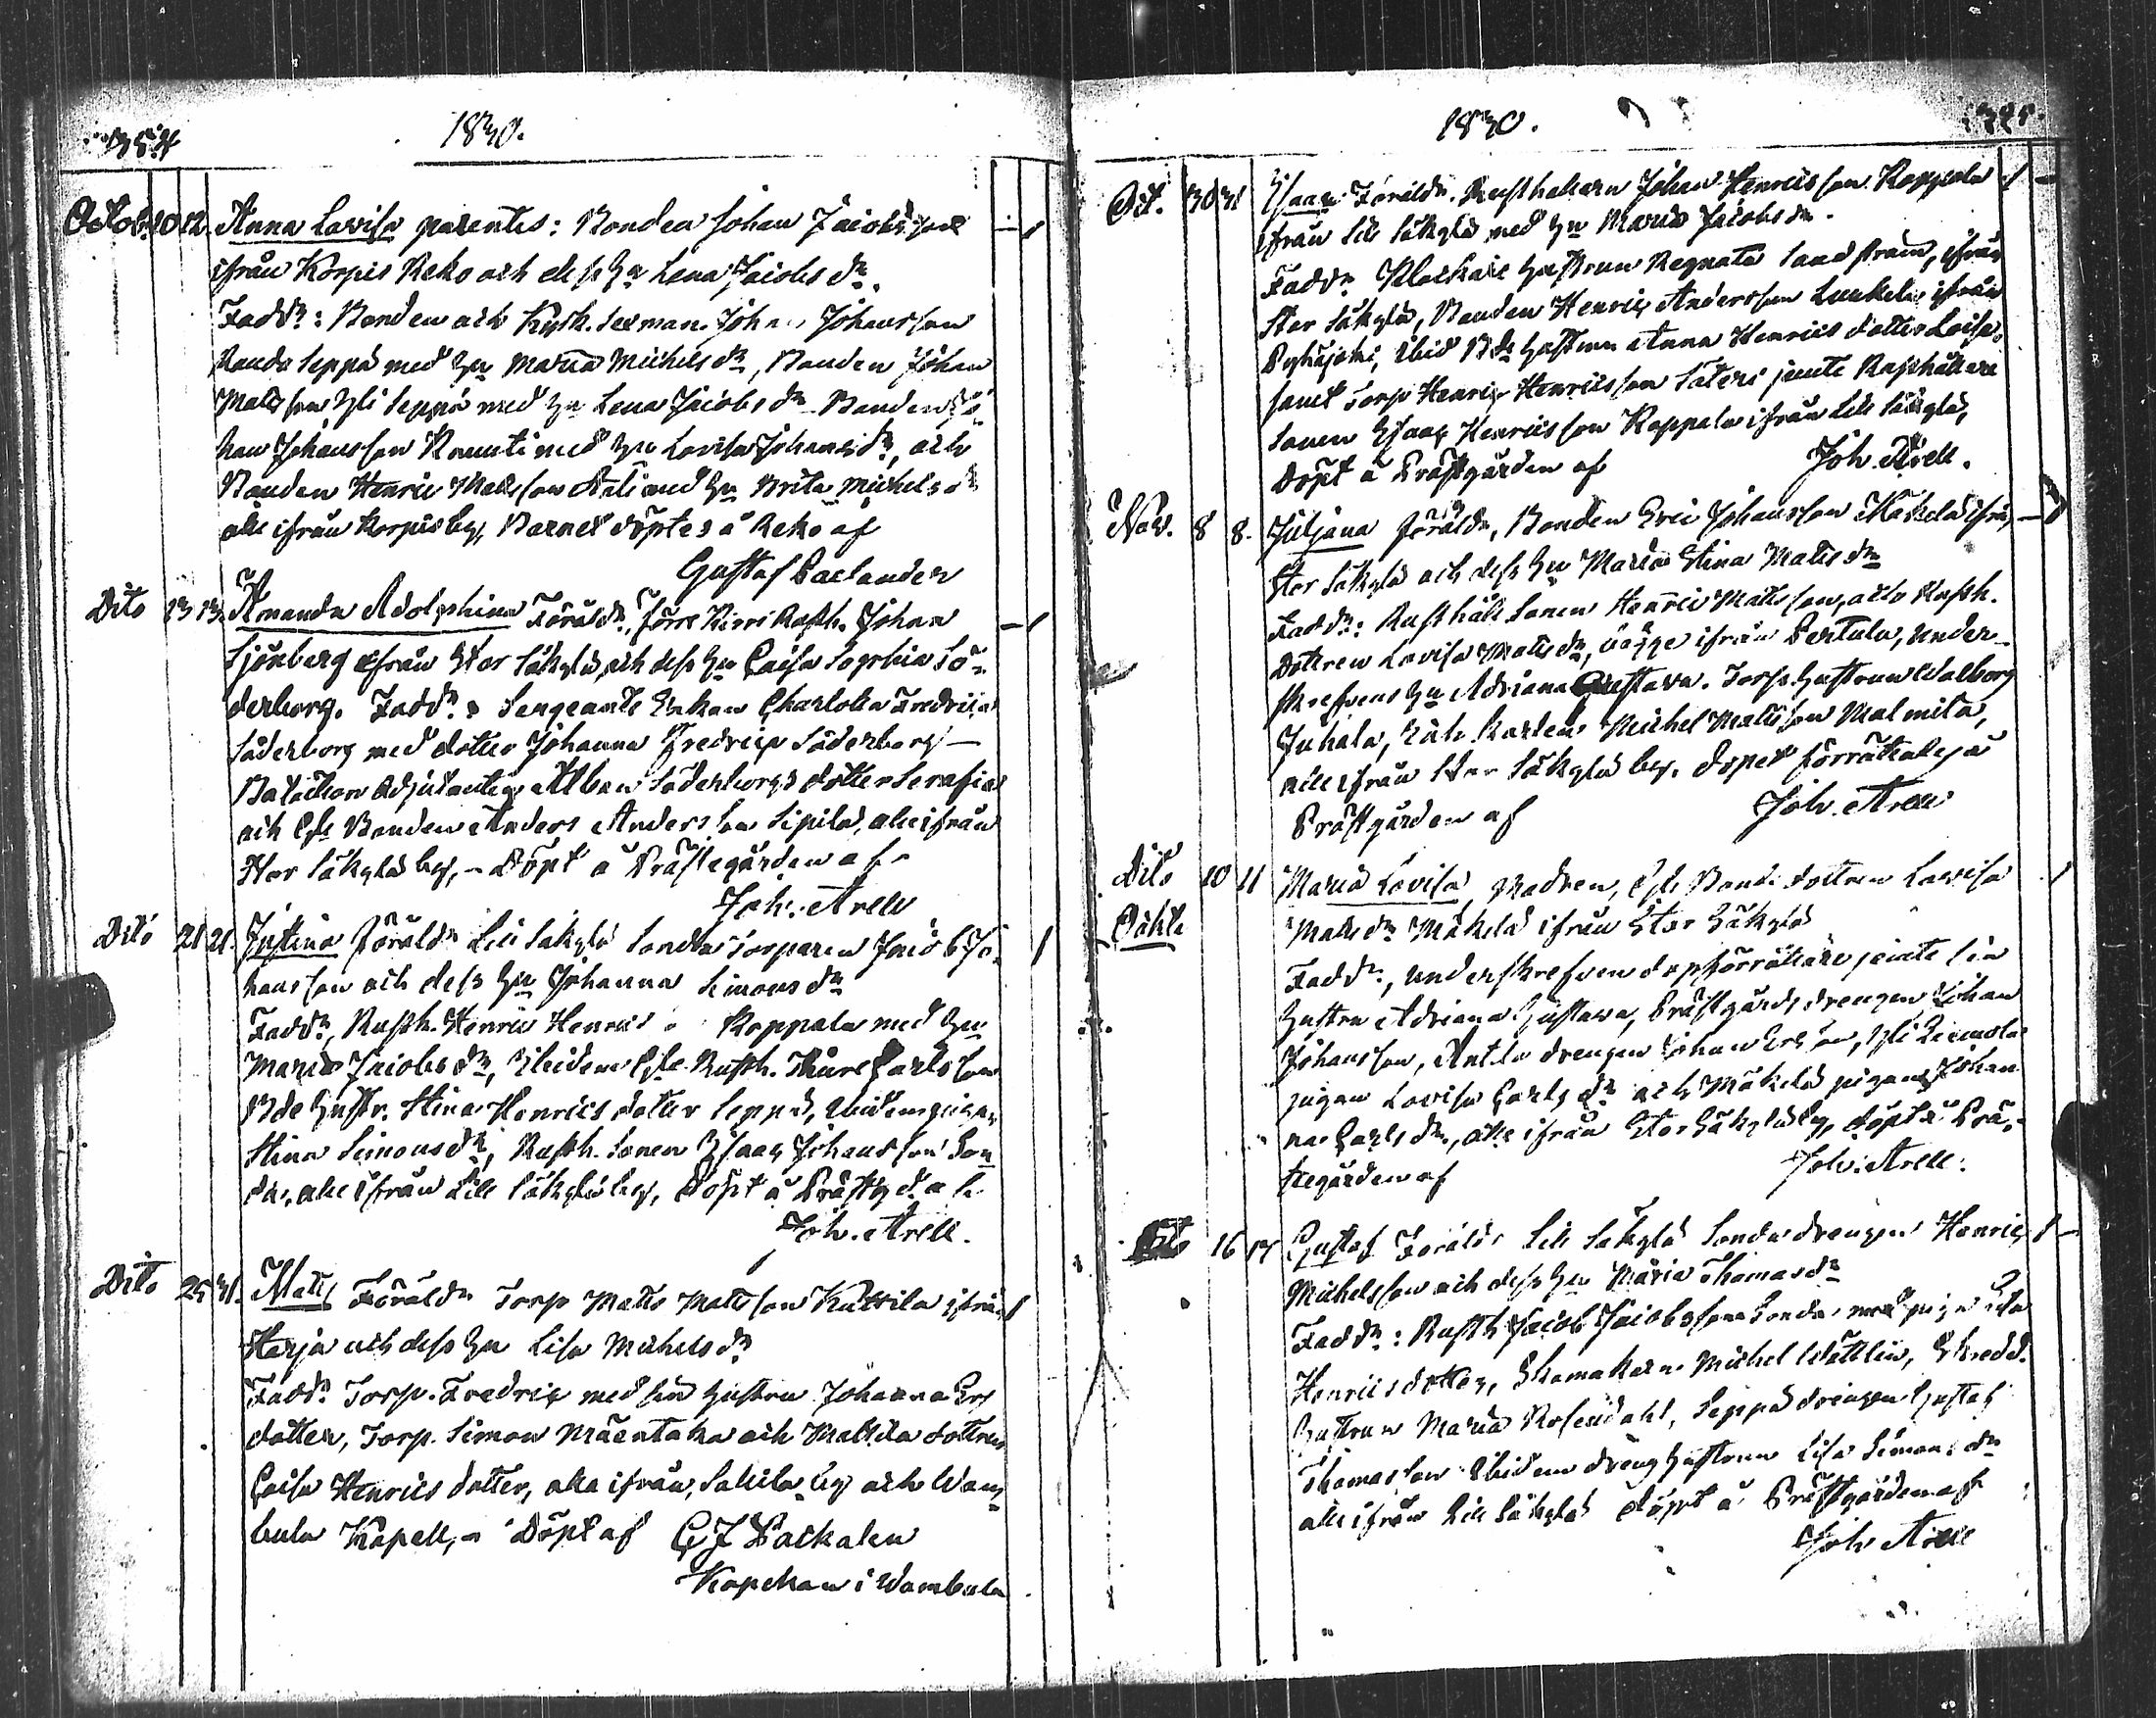 354
1830.
Octob. 10 12. Anna Lovisa parentes: Bonden Johan Jacobsson
ifrån Korpis Reko och dess Hu Lena Jacobs dr.
Faddr: Bonden och Kyrk. Johan Johansson
Seppä med Hu Maria Michels dr, Bonden Johan
Matsson Yli Seppä med Hu Lena Jacobs dr Bonden Jo-
han Johansson med Hu Lovisa Johans dr, och
Bonden Henric Matsson med Hu Brita Michels dr
alle ifrån Korpis by, Barnet döptes å Reko af
Gustaf Paclander
Dito 13 13. Amanda Adolphina Föräldr, förre Rusth. Johan
Sjönberg ifrån Stor Säkylä och dess Hu Caisa Sophia Sö-
derborg. Faddr: Sergeants Enkan Charlotta Fredrica
Söderborg med dotter Johanna Fredrica Söderborg
Adjutanten Alban Söderborgs dotter Serafia
och Bonden Anders Andersson Sipilä, alle ifrån
Stor Säkylä by, - Döpt å Prästegården af
Joh. Arell
Dito 21 21. Justina Föräldr Lill Säkylä Sonda Torparen Jacob Jo-
hansson och dess Hu Johanna Simons dr
Faddr, Rusth. Henric Henrics Koppala med Hu
Maria Jacobs dr, Ibidem Rusth. Thure Carlsson
Bde Hustr. Stina Henrics dotter Seppä, Ibidem pigan
Stina Simons dr, Rusth. Sonen Isaac Johansson Son-
da, alle ifrån Lill Säkylä by, Döpt å Prästg. af
Joh. Arell.
Dito 25 31. Matts Föräldr Torp Matts Mattsson Kattila ifrån
Harja och dess Hu Lisa Michels dr
Faddr Torp. Fredric med sin hustru Johanna Ers
dotter, Torp. Simon Mäentaka och Mattila dottren
Caisa Henrics dotter, alla ifrån by och Wam-
bula Kapell, - Döpt af C J Packalen
Kapellan i Wambula
1830.
Oct. 30 31 Isaac Föräldr. Rusthållaren Johan Henricsson Koppala
ifrån Lill Säkylä med Hu Maria Jacobs dr.
Faddr Klockare Hustrun Regnata Sandström, ifrån
Stor Säkylä, Bonden Henric Andersson ifrån
Pyhäjoki, Ibid Bde Hustrun Anna Henrics dotter
samt Torp Henric Henricsson Säteri jemte Rusthållare
Sonen Isaac Henricsson Koppala ifrån Lill Säkylä,
Döpt å Prästgården af Joh. Arell.
Nov. 8 8. Juljana Föräldr, Bonden Eric Johansson Mäkelä ifrån
Stor Säkylä och dess Hu Maria Stina Mats dr
Faddr: Rusthåll Sonen Henric Matsson, och Rusth.
Dottren Lovisa Mats dr, bägge ifrån Pertula, Under-
skrefvens Hu Adriana Gustava. Torp. Hustrun Walborg
Juhala, Michel Matsson Malmita,
alle ifrån Stor Säkylä by. Dopet förrättades å
Prästgården af Joh. Arell
Dito 10 11 Maria Lovisa Modren, Bonde dottren Lovisa
Oäkta Mats dr Mäkelä ifrån Stor Säkylä
Faddr, underskrefven dopförrättare jemte sin
Hustru Adriana Gustava, Prästgårds drengen Johan
Johansson, Antila drengen Johan Ersson, Yli
pigan Lovisa Carls dr och Mäkelä pigan Johan-
na Carls dr, alle ifrån Stor Säkylä by, döpt å Prä-
stegården af Joh. Arell.
Dito 16 17 Gustaf Föräldr Lill Säkylä Sonda drengen Henric
Michelsson och dess Hu Maria Thomas dr
Faddr: Rusth Jacob Jacobsson Sonda med pigan
Henrics dotter, Skomakaren Michel Wättlin, Skredd.
Hustrun Maria Rosendahl, Seppä drengen Gustaf
Thomasson Ibidem dreng Hustrun Lisa Simons dr
alle ifrån Lill Säkylä döpt å Prästgården af
Joh. Arell